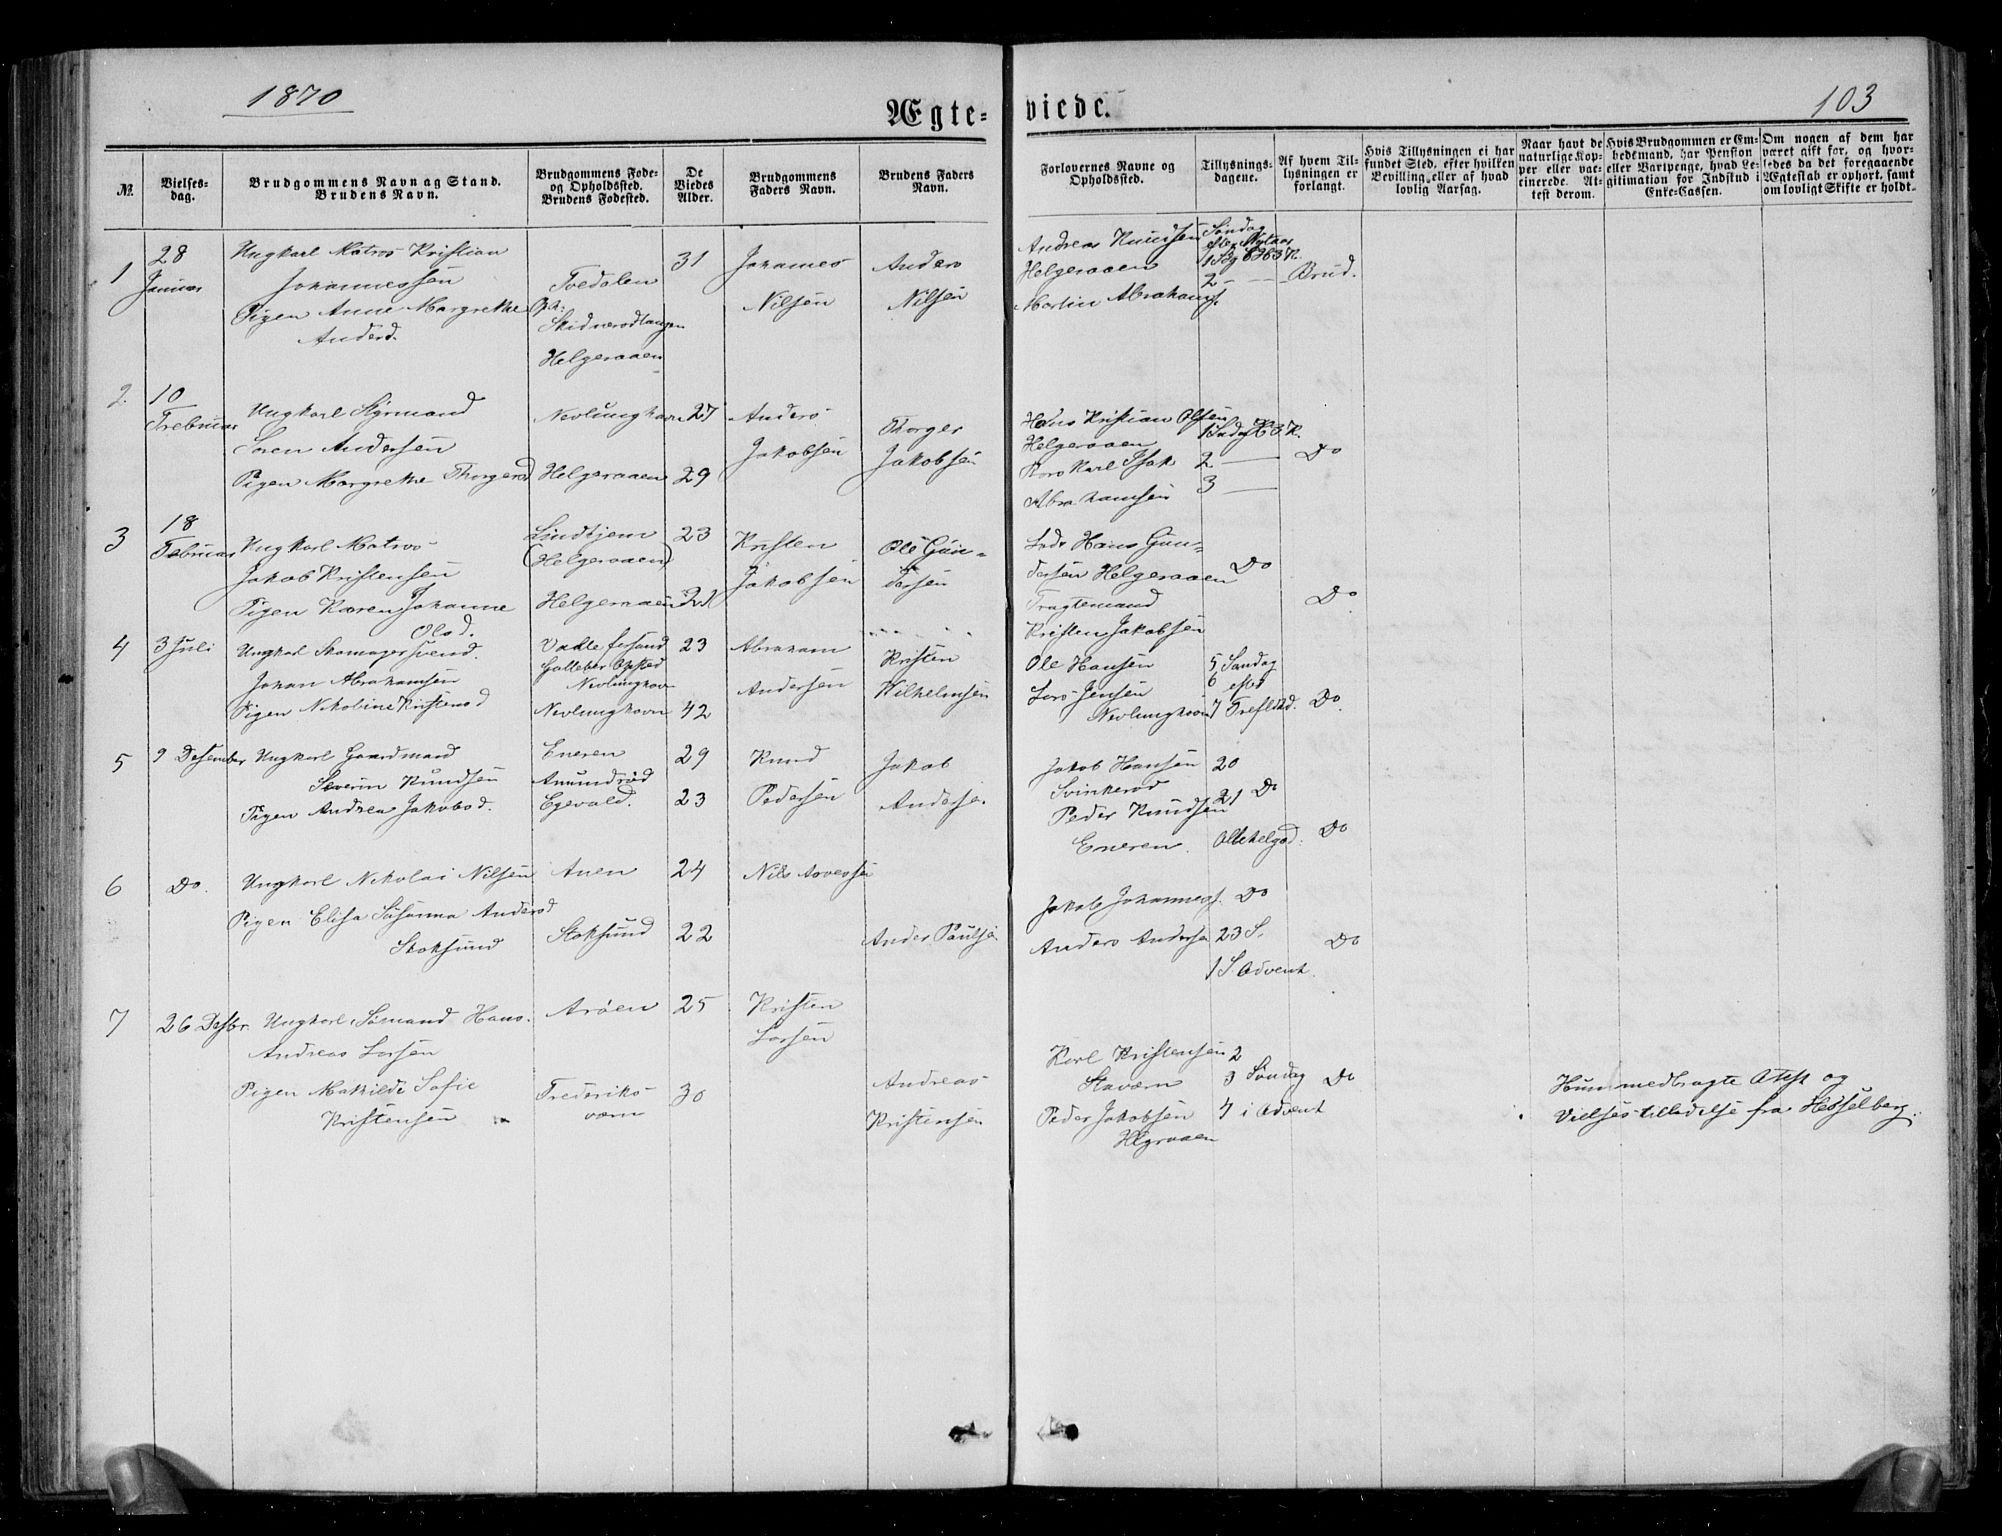 1870
Ægte=
viede.
103
№.
Vielses-
dag.
Brudgommens Navn og Stand.
Brudens Navn.
Brudgommens Føde-
og Opholdssted.
Brudens Fødested.
De
Viedes
Alder.
Brudgommens
Faders Navn.
Brudens Faders
Navn.
Forlovernes Navne og
Opholdssted.
Tillysnings-
dagene.
Af hvem Til-
lysningen er
forlangt.
Hvis Tillysningen ei har
fundet Sted, efter hvilken
Bevilling eller af hvad
lovlig Aarsag.
Naar havt de
naturlige Kop-
per eller vac-
cinerede. At-
test derom.
Hvis Brudgommen er Em-
bedsmand, har Pension
eller Vartpenge, hvad Le-
gitimation for Indskud i
Enke-Cassen.
Om nogen af dem har
været gift før, og hvor-
ledes da det foregaaende
Ægteskab er ophørt, samt
om lovligt Skifte er holdt.
1
28
Januar
Ungkarl Matros Kristian
Johannessen
Pigen Anne Margrethe
Andersd.
Tvedalen
Skidnerodtangen
Helgeraaen
31
Johannes
Nilsen
Anders
Nilsen
Andreas Knudsen
Helgeraaen
Martin Abrahams.
Søndag
efter Nytaar
2 –
Brud.
2
10
Februar
Ungkarl Styrmand
Soren Andersen
Pigen Margrethe Thorgersd
Nevlunghavn
Helgeraaen
27
29
Anders
Jakobsen
Thorger
Jakobsen
Hans Kristian Olsen
Helgeraaen
Karl Isak
Abrahamsen
2 —
3 —
Do
3
18
Februar
Ungkarl Matros
Jakob Kristensen
Pigen Karen Johanne
Olsd.
Lindtjem
(Helgeraaen)
Helgeraaen
23
21
Kristen
Jakobsen
Ole Gun-
dersen
Hans Gun-
dersen Helgeraaen
Fragtemand
Kristen Jakobsen
Do
Do
4
3 Juli
Ungkarl Skomagersvend.
Johan Abrahamsen
Pigen Nikoline Kristensd
Nevlunghavn
Nevlunghavn
23
42
Abraham
Andersen
Kristen
Wilhelmsen
Ole Hansen
Lars Jensen
Nevlunghavn
5 Søndag
6 efter
7 Trefthd.
Do
5
9 Desember
Ungkarl Gaardmand
Severin Knudsen
Pigen Andrea Jakobsd.
Eneren
Amundrød
Egevald.
29
23
Knud
Pedersen
Jakob
Andersen
Jakob Hansen
Svinkerød
Peder Knudsen
Eneren.
20
21 Do
Allehelgsd.
Do
6
Do.
Ungkarl Nikolai Nilsen
Pigen Elisa Susanna Andersd
Stoksund
Auen
Stoksund
24
22
Nils
Anders Paulsen
Jakob Johanness.
Anders Andersen
Do
23 S.
1 S. Advent.
Do
7
26 Desbr.
Ungkarl Sømand Hans
Andreas Larsen
Pigen Mathilde Sofie
Kristensen
Arøen
Frederiks-
værn
25
30
Kristen
Larsen
Andreas
Kristensen
Karl Kristensen
Staværn
Peder Jakobsen
Helgraaen
2
3 Søndag
4 i Advent
Do
Hun medbragte Attest og
Vielsestilladelse fra Hesselberg.